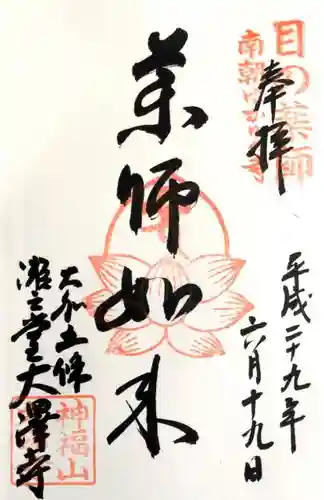 目の薬師
奉拝
薬師如来
平成二十九年
六月十九日
大和五條
瀬之堂大澤寺
神福山